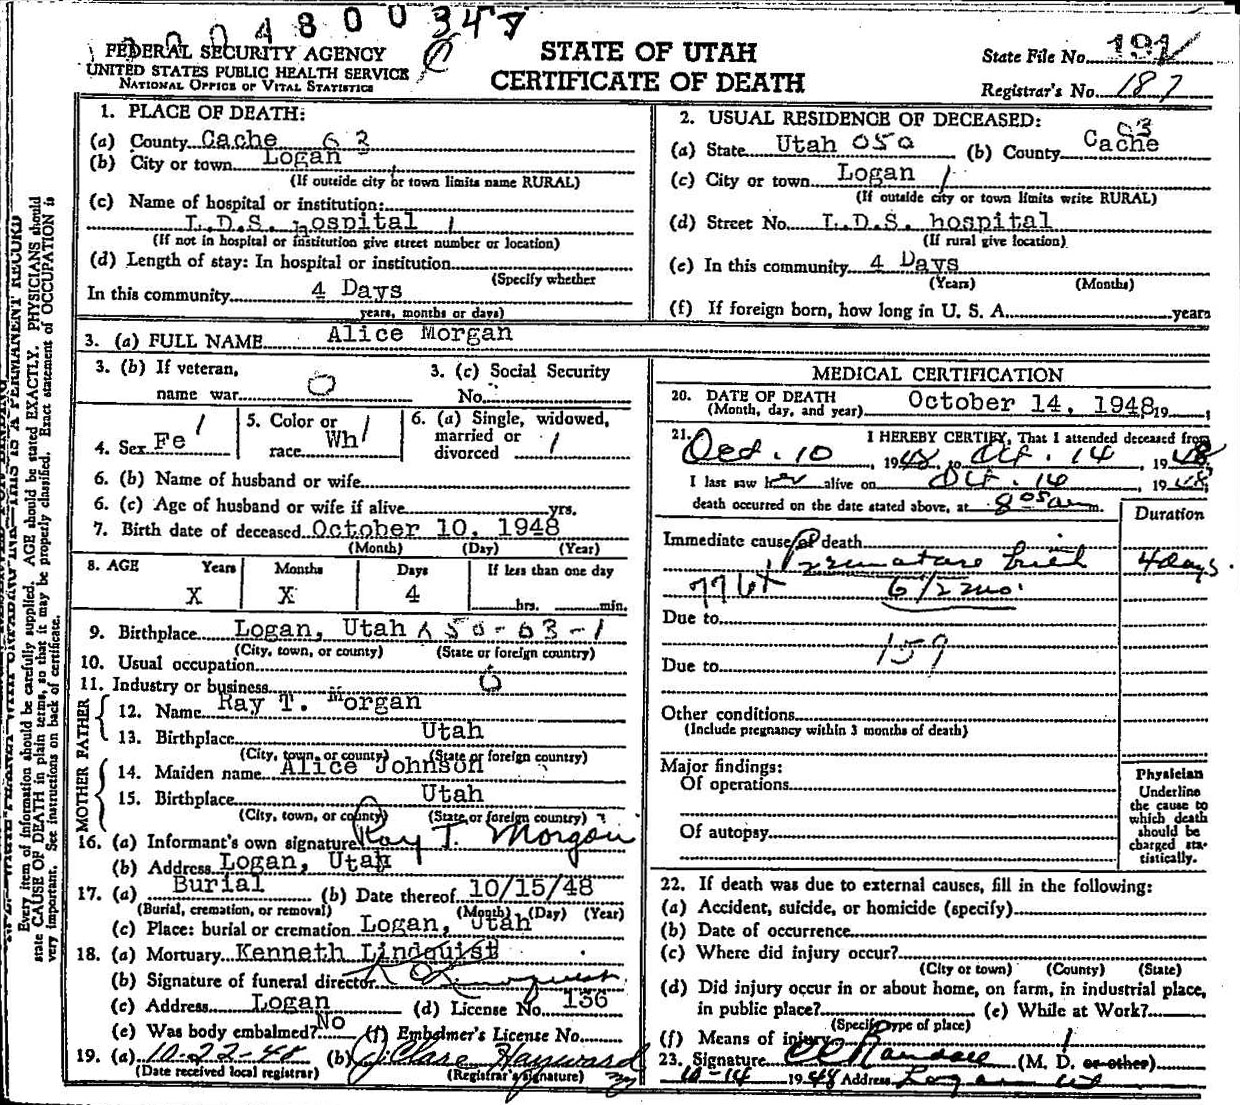 004800347
FEDERAL SECURITY AGENCY
UNITED STATES PUBLIC HEALTH SERVICE
NATIONAL OFFICE OF VITAL STATISTICS
STATE OF UTAH
CERTIFICATE OF DEATH
State File No. 191
Registrar's No. 187
Every item of information should be carefully supplied. AGE should be stated EXACTLY. PHYSICIANS should
state CAUSE OF DEATH in plain terms, so that it may be properly classified. Exact statement of OCCUPATION is
very important. See instructions on back of certificate.
1. PLACE OF DEATH:
(a) County Cache 63
(b) City or town Logan
(If outside city or town limits name RURAL)
(c) Name of hospital or institution:
L.D.S. hospital 1
(If not in hospital or institution give street number or location)
(d) Length of stay: In hospital or institution
(Specify whether
In this community 4 Days
years, months or days)
2. USUAL RESIDENCE OF DECEASED:
(a) State Utah 050 (b) County Cache 03
(c) City or town Logan 1
(If outside city or town limits write RURAL)
(d) Street No. L.D.S. hospital
(If rural give location)
(e) In this community 4 Days
(Years) (Months)
(f) If foreign born, how long in U. S. A. years
3. (a) FULL NAME Alice Morgan
3. (b) If veteran, name war O
3. (c) Social Security No.
4. Sex Fe 1
5. Color or race Wh 1
6. (a) Single, widowed, married or divorced 1
6. (b) Name of husband or wife
6. (c) Age of husband or wife if alive yrs.
7. Birth date of deceased October 10, 1948
(Month) (Day) (Year)
8. AGE Years Months Days If less than one day
X X 4 hrs. min.
9. Birthplace Logan, Utah 050-03-1
(City, town, or county) (State or foreign country)
10. Usual occupation
11. Industry or business O
FATHER
12. Name Ray T. Morgan
13. Birthplace Utah
(City, town, or county) (State or foreign country)
MOTHER
14. Maiden name Alice Johnson
15. Birthplace Utah
(City, town, or county) (State or foreign country)
16. (a) Informant's own signature Ray T. Morgan
(b) Address Logan, Utah
17. (a) Burial (b) Date thereof 10/15/48
(Burial, cremation, or removal) (Month) (Day) (Year)
(c) Place: burial or cremation Logan, Utah
18. (a) Mortuary Kenneth Lindquist
(b) Signature of funeral director K Lindquist
(c) Address Logan (d) License No. 136
(e) Was body embalmed? No (f) Embalmer's License No.
19. (a) 10-22-48 (b) J. Clare Hayward
(Date received local registrar) (Registrar's signature)
MEDICAL CERTIFICATION
20. DATE OF DEATH
(Month, day, and year) October 14, 1948 19
21. I HEREBY CERTIFY, That I attended deceased from
Oct. 10, 1948, to Oct. 14, 1948
I last saw her alive on Oct. 14, 1948
death occurred on the date stated above, at 8 05 am m.
Duration
Immediate cause of death
Premature birth 4 days
776X 6 1/2 mo.
Due to
159
Due to
Other conditions
(Include pregnancy within 3 months of death)
Major findings:
Of operations
Of autopsy
Physician
Underline
the cause to
which death
should be
charged sta-
tistically.
22. If death was due to external causes, fill in the following:
(a) Accident, suicide, or homicide (specify)
(b) Date of occurrence
(c) Where did injury occur?
(City or town) (County) (State)
(d) Did injury occur in or about home, on farm, in industrial place,
in public place? (e) While at Work?
(Specify type of place)
(f) Means of injury 1
23. Signature CC Randall (M. D. or other)
10-14 1948 Address Logan Ut